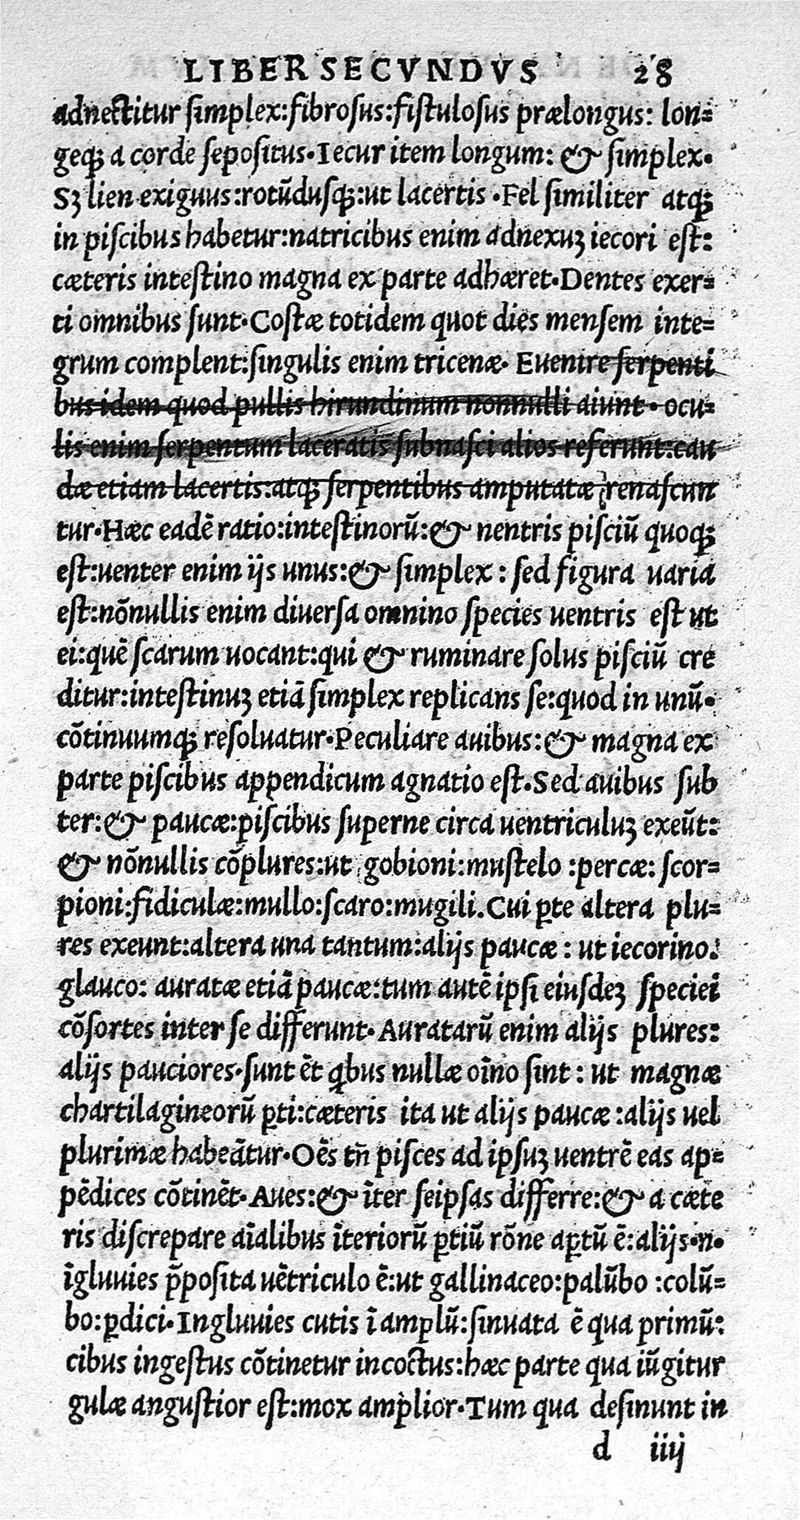 LIBER SECVNDVS 28
adnectitur ſimplex:fibroſus:fiſtuloſus prælongus: lon=
geqꝫ a corde ſepoſitus·Iecur item longum: & ſimplex·
Sꝫ lien exiguus:rotūduſqꝫ:ut lacertis ·Fel ſimiliter atqꝫ
in piſcibus habetur:natricibus enim adnexuꝫ iecori eſt:
cæteris inteſtino magna ex parte adhæret·Dentes exer=
ti omnibus ſunt·Coſtæ totidem quot dies menſem inte=
grum complent:ſingulis enim tricenæ· Euenire ſerpenti
bus idem quod pullis hirundinum nonnulli aiunt· ocu=
lis enim ſerpentum laceratis ſubnaſci alios referunt:cau
dæ etiam lacertis:atqꝫ ſerpentibus amputatæ renaſcun
tur·Hæc eadē ratio:inteſtinorū:& nentris piſciū quoqꝫ
eſt:uenter enim ijs unus:& ſimplex: ſed figura uaria
eſt:nōnullis enim diuerſa omnino ſpecies uentris eſt ut
ei:quē ſcarum uocant:qui & ruminare ſolus piſciū cre
ditur:inteſtinuꝫ etiā ſimplex replicans ſe:quod in unū·
cōtinuumqꝫ reſoluatur·Peculiare auibus:& magna ex
parte piſcibus appendicum agnatio eſt·Sed auibus ſub
ter:& paucæ:piſcibus ſuperne circa uentriculuꝫ exeūt:
& nōnullis cōplures:ut gobioni:muſtelo :percæ: ſcor=
pioni:fidiculæ:mullo:ſcaro:mugili.Cui ꝑte altera plu=
res exeunt:altera una tantum:alijs paucæ: ut iecorino:
glauco: auratæ etiā paucæ:tum autē ipſi eiuſdeꝫ ſpeciei
cōſortes inter ſe differunt· Auratarū enim alijs plures:
alijs pauciores·ſunt ēt qbus nullæ oīno ſint: ut magnæ
chartilagineorū ꝑti:cæteris ita ut alijs paucæ:alijs uel
plurimæ habeātur·Oēs tñ piſces ad ipſuꝫ uentrē eas ap=
pēdices cōtinēt·Aues:& īter ſeipſas differre:& a cæte
ris diſcrepare aīalibus īteriorū ꝑtiū rōne aꝑtū ē:alijs·n·
īgluuies p̄poſita uētriculo ē:ut gallinaceo:palūbo :colū=
bo:ꝑdici·Ingluuies cutis ī amplū:ſinuata ē qua primū:
cibus ingeſtus cōtinetur incoctus:hæc parte qua iūgitur
gulæ anguſtior eſt:mox amplior·Tum qua deſinunt in
d iiij